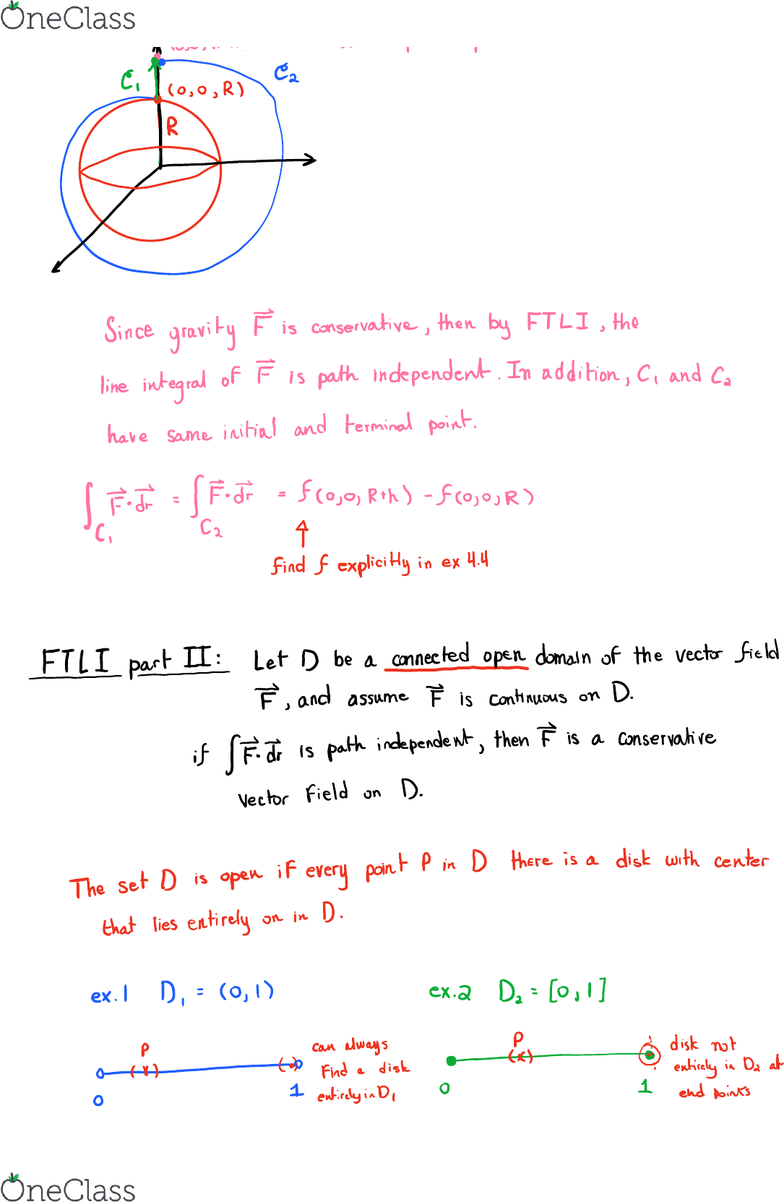 OneClass
C₁
C₂
(0,0,R)
R
Since gravity F⃗ is conservative, then by FTLI, the
line integral of F⃗ is path independent. In addition, C₁ and C₂
have same initial and terminal point.
∫_C₁ F⃗·dr⃗ = ∫_C₂ F⃗·dr⃗ = f(0,0,R+h) - f(0,0,R)
find f explicitly in ex 4.4
FTLI part II: Let D be a connected open domain of the vector field
F⃗, and assume F⃗ is continuous on D.
if ∫F⃗·dr⃗ is path independent, then F⃗ is a conservative
vector field on D.
The set D is open if every point P in D there is a disk with center
that lies entirely on in D.
ex.1 D₁ = (0,1)
ex.2 D₂ = [0,1]
P
can always
find a disk
entirely in D₁
0
1
P
disk not
entirely in D₂ at
end points
0
1
OneClass